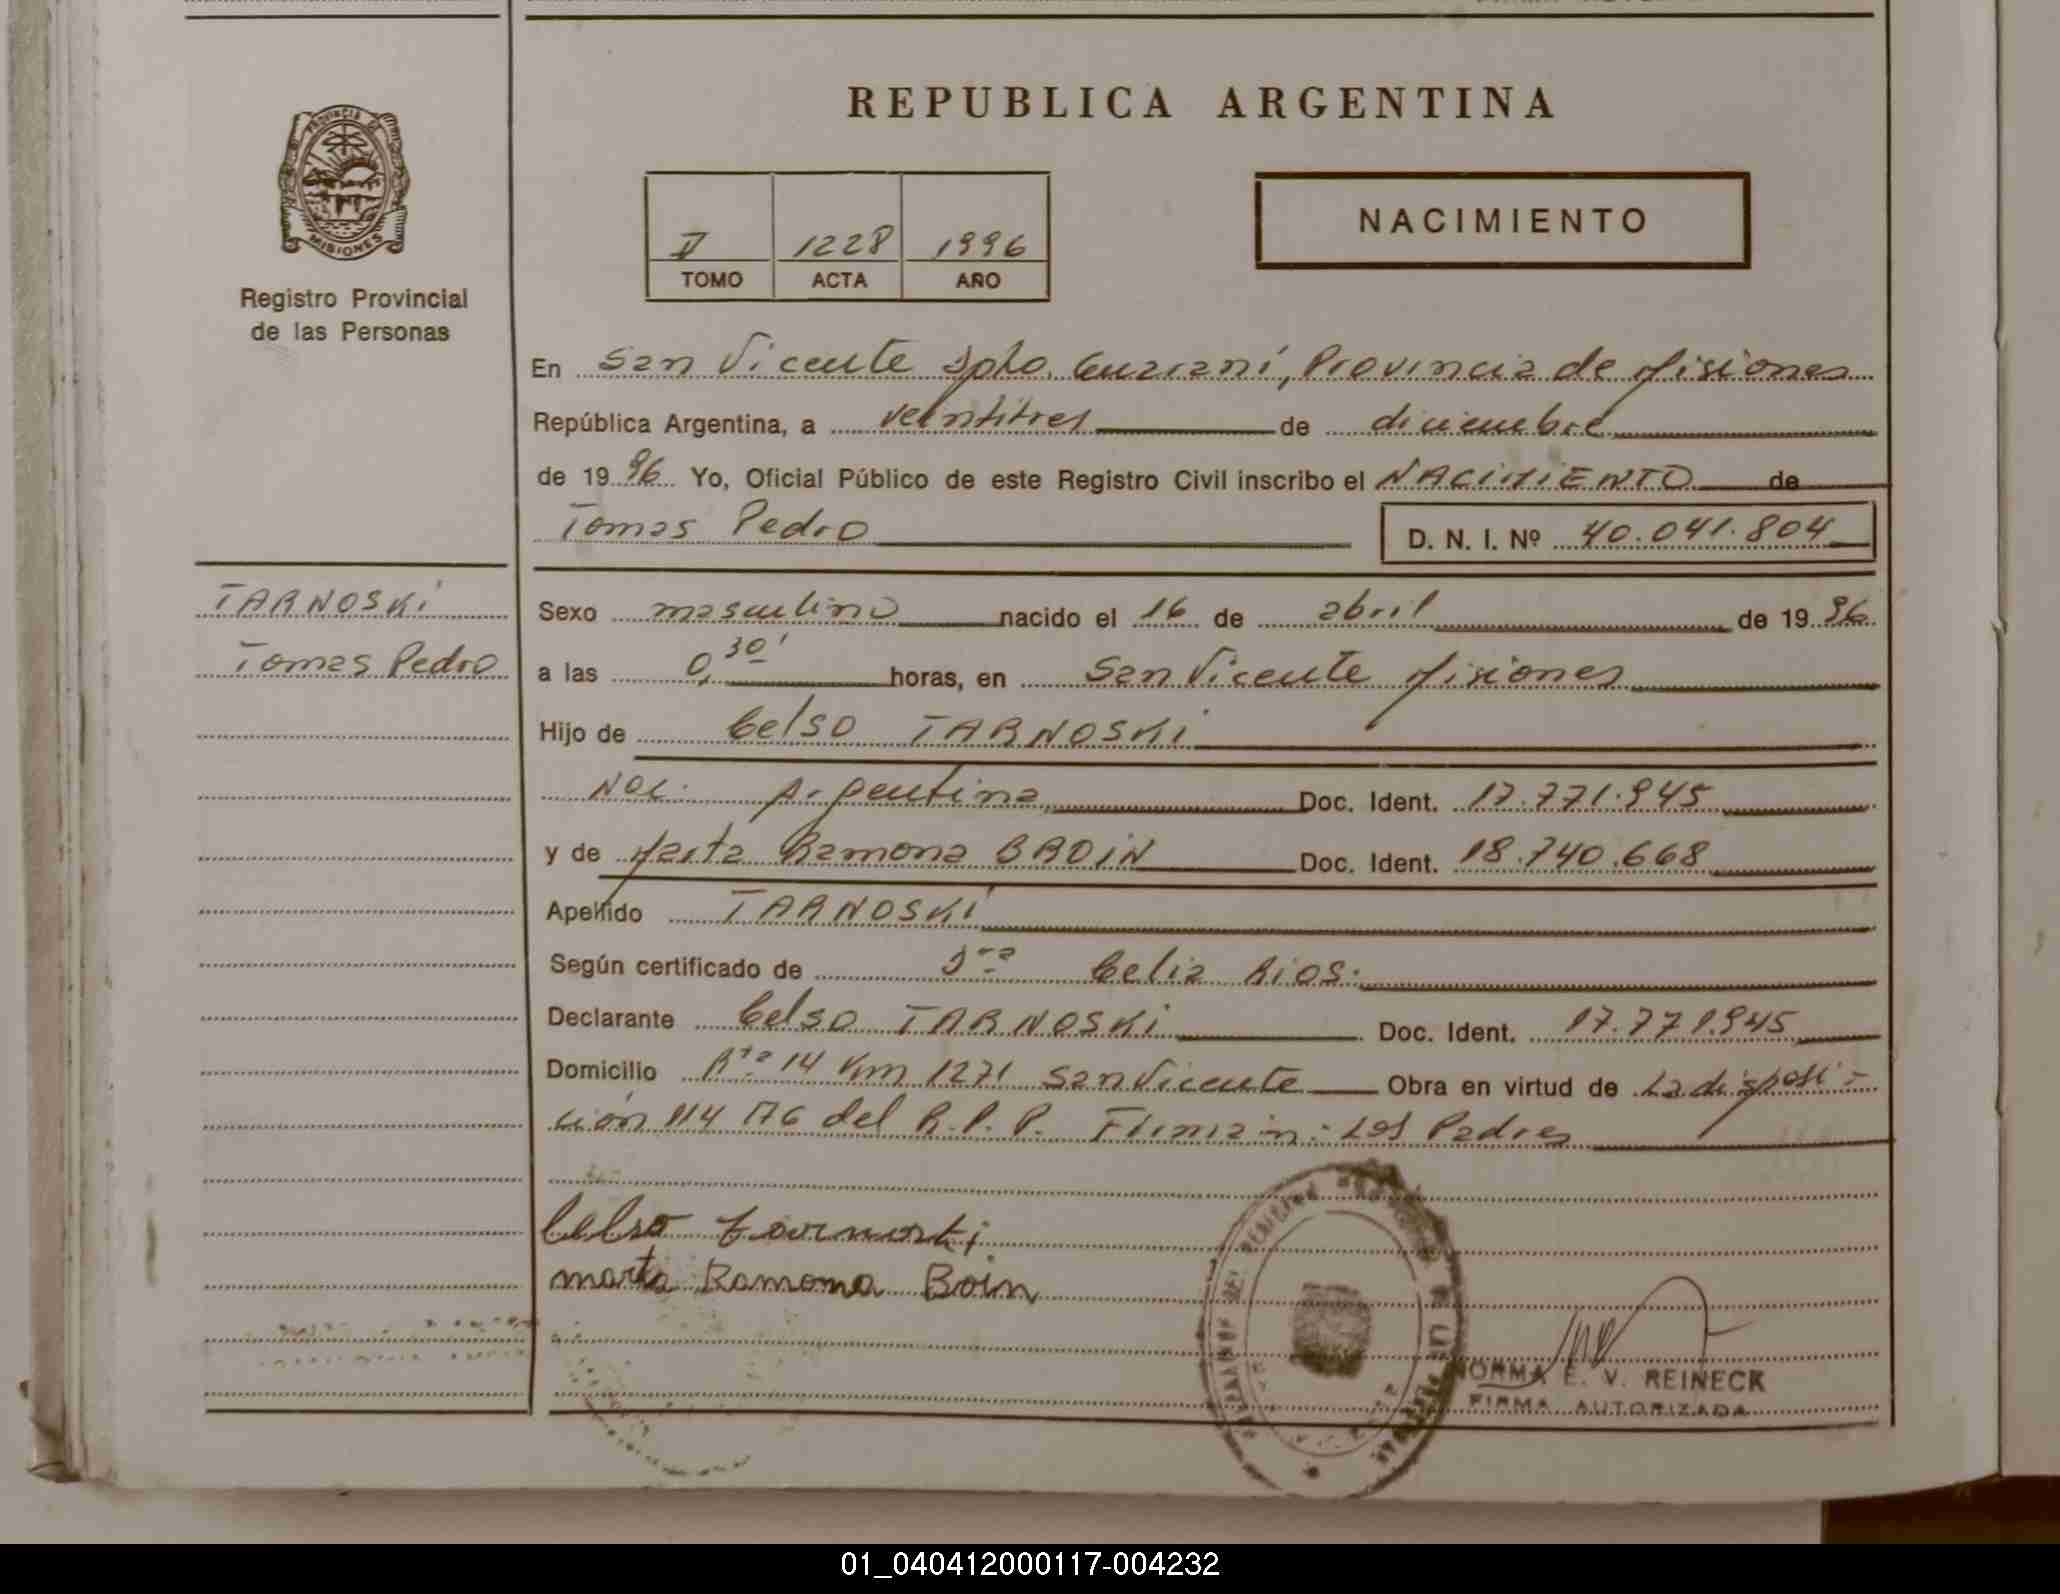 REPUBLICA ARGENTINA
PROVINCIA DE
MISIONES
Registro Provincial
de las Personas
1228 1996
TOMO ACTA AÑO
NACIMIENTO
En San Vicente Dpto. Guaraní, Provincia de Misiones
República Argentina, a veintitres de diciembre
de 1996 Yo, Oficial Público de este Registro Civil inscribo el NACIMIENTO de
Tomas Pedro D. N. I. Nº 40.041.804
TARNOSKI
Tomas Pedro
Sexo masculino nacido el 16 de abril de 1996
a las 0,30' horas, en San Vicente Misiones
Hijo de Celso TARNOSKI
Nac. Argentina Doc. Ident. 17.771.945
y de Marta Ramona BROIN Doc. Ident. 18.740.668
Apellido TARNOSKI
Según certificado de Dra Celia Rios.
Declarante Celso TARNOSKI Doc. Ident. 17.771.945
Domicilio Rta 14 Km 1271 San Vicente Obra en virtud de La disposi-
ción 114/76 del R.P.P. Firman: Los Padres
Celso Tarnoski
marta Ramona Boin
NORMA E. V. REINECK
FIRMA AUTORIZADA
01_040412000117-004232